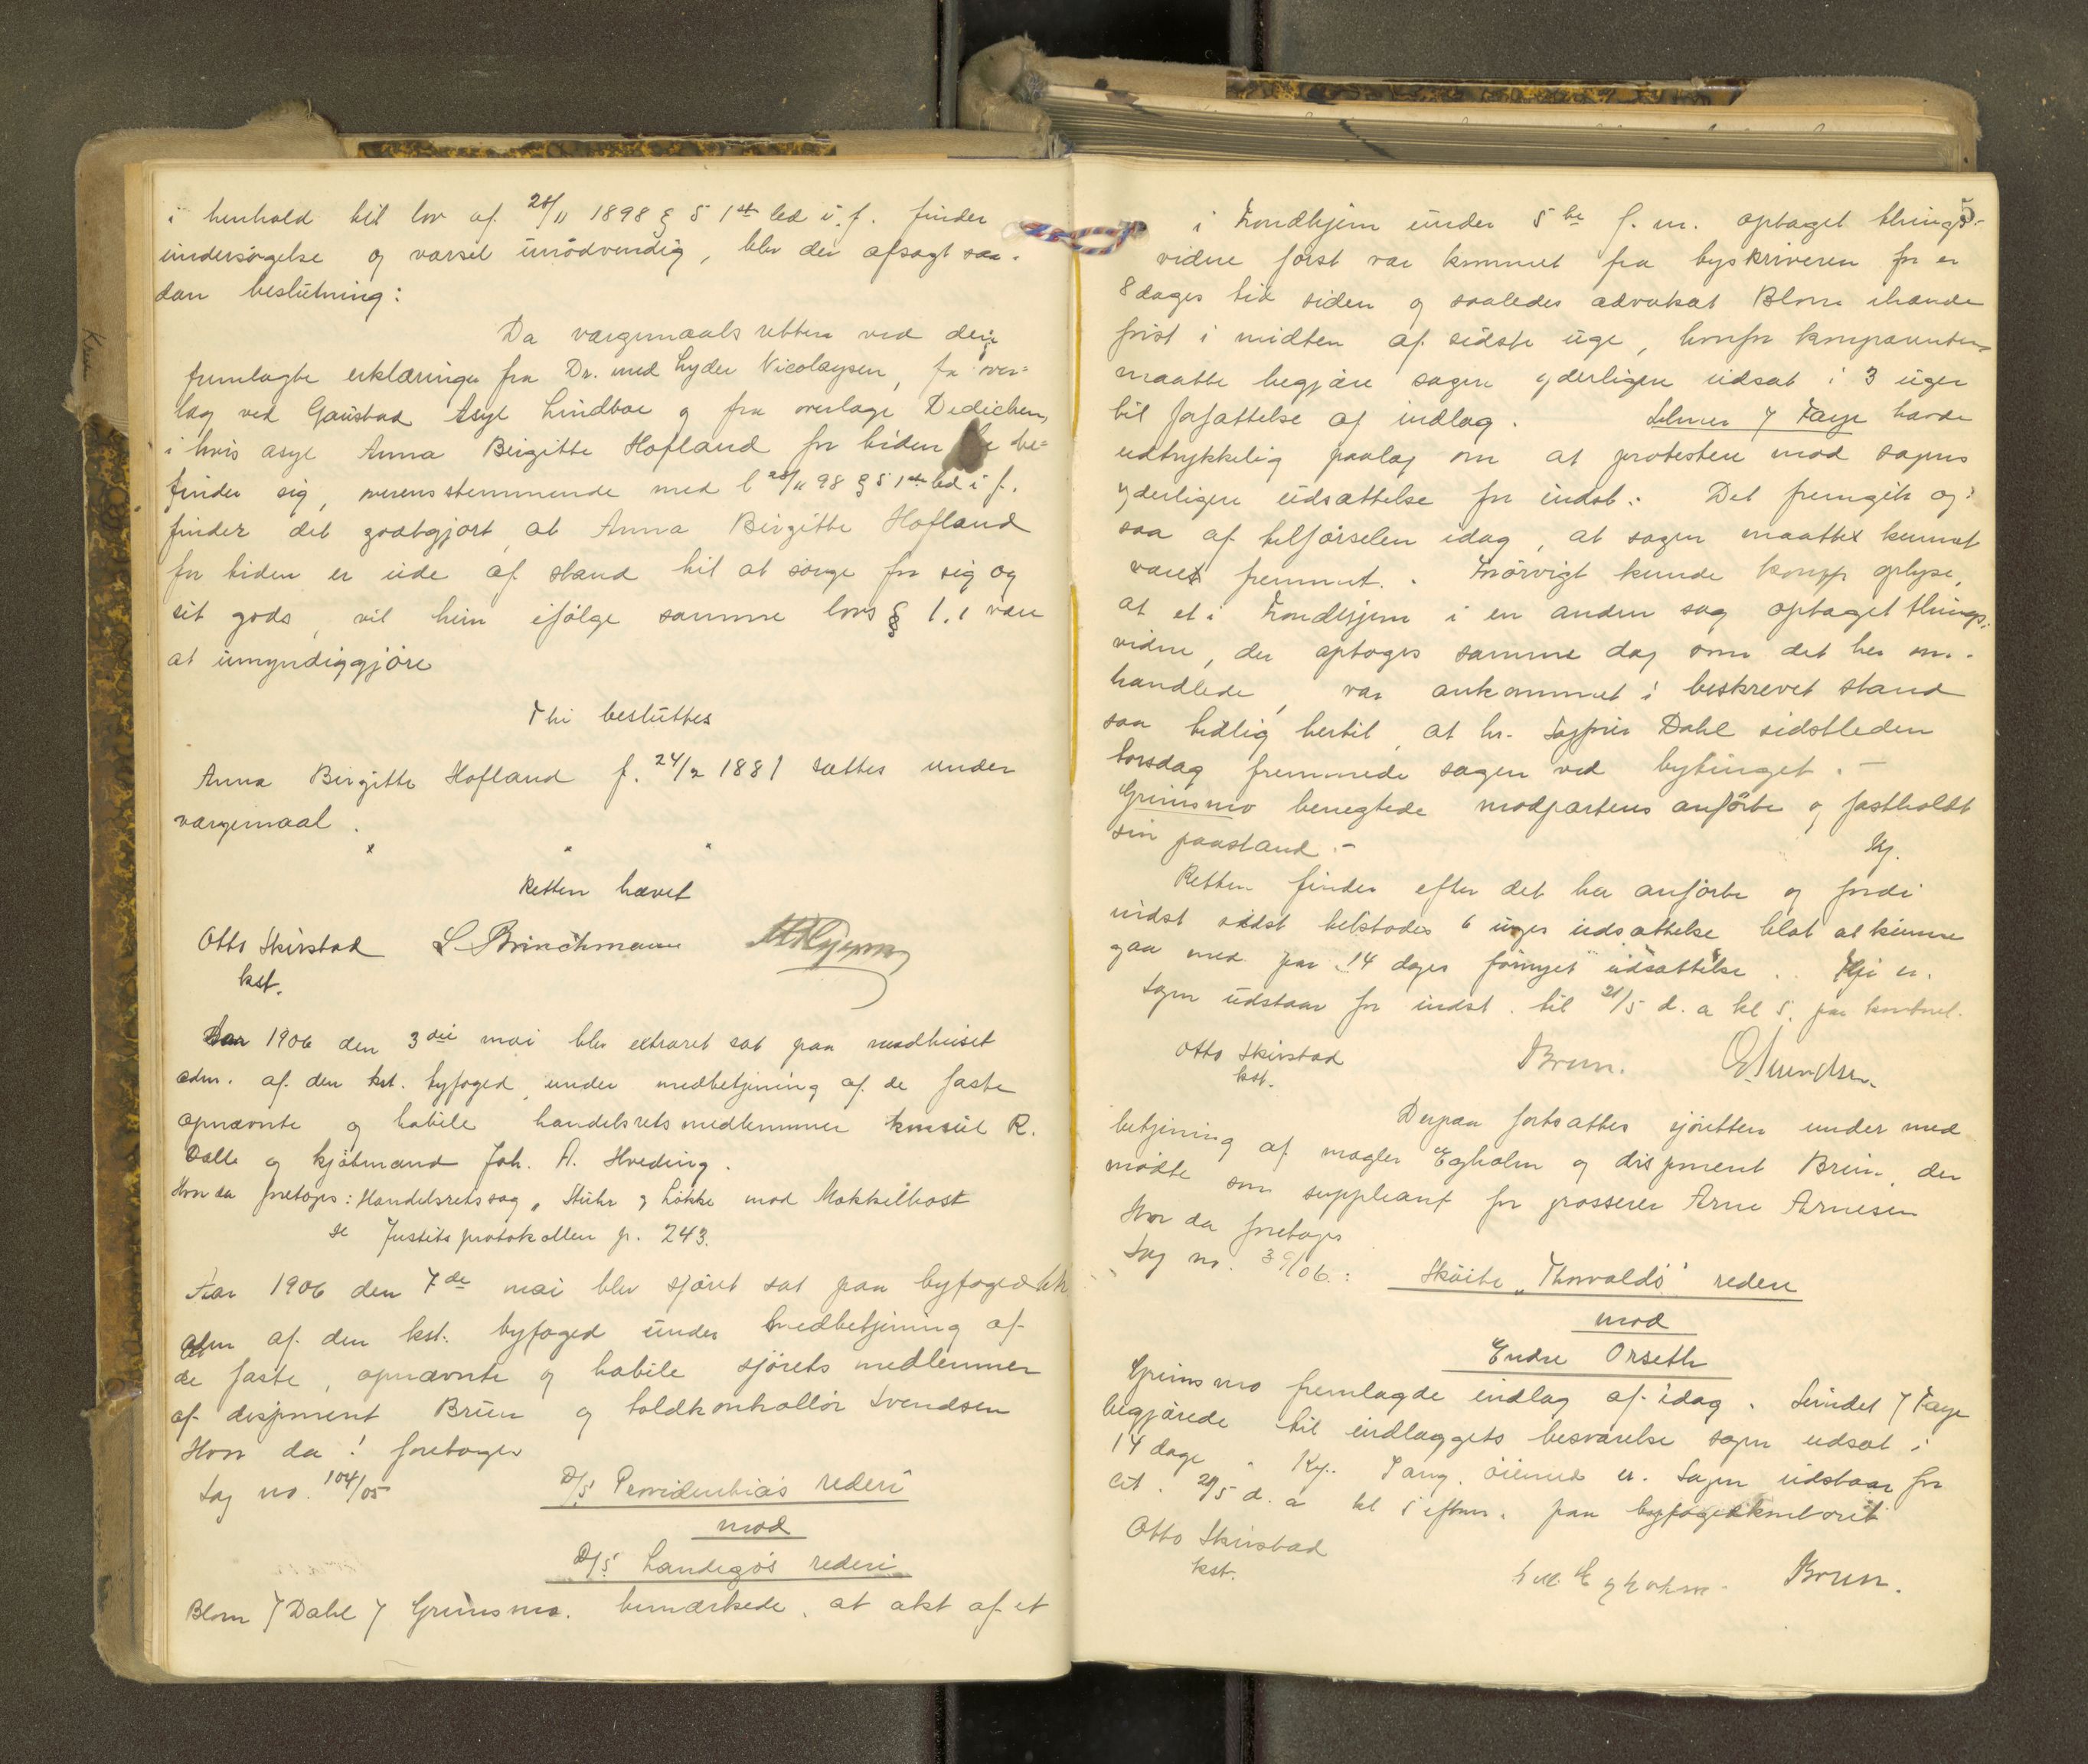 i henhold til lov af 28/11 1898 § 5 1ste led i. f. finder
undersøgelse og varsel unødvendig, blev der afsagt saa-
dan beslutning:
Da værgemaalsretten ved de
fremlagte erklæringer fra Dr. med Lyder Nicolaysen, fra over=
læg ved Gaustad Asyl Lindboe og fra overlæge Dedichen,
i hvis asyl Anna Birgitte Hofland for tiden be=
finder sig, overensstemmende med l 28/11 98 § 5 1ste led i f.
finder det godtgjort, at Anna Birgitte Hofland
for tiden er ude af stand til at sørge for sig og
sit gods, vil hun ifølge samme lovs § 1.1 være
at umyndiggjøre
Thi besluttes
Anna Birgitte Hofland f. 24/2 1881 sættes under
værgemaal.
Retten hævet
Otto Skirstad L Brinchmann
kst.
Aar 1906 den 3die mai blev extraret sat paa raadhuset
adm. af den kst. byfoged, under medbetjening af de faste
opnævnte og habile handelsretsmedlemmer konsul R.
Dalle og kjøbmand Joh. A. Hveding.
Hvor da foretoges: Handelsretssag, Stuhr & Løkke mod Mokkelbost
se Justitsprotokollen p. 243.
Aar 1906 den 7de mai blev sjøret sat paa byfogedktr
adm af den kst. byfoged under medbetjening af
de faste, opnævnte og habile sjøretsmedlemmer
af disponent Brun og toldkontrollør Svendsen
Hvor da! foretoges
Sag no. 104/05
D/S Providentia's rederi
mod
D/S Landego's rederi
Blom / Dahl / Grimsmo. bemærkede, at akt af et
5
i Trondhjem under 5te f. m. optaget things-
vidne først var kommet fra byskriveren for en
8 dages tid siden og saaledes advokat Blom ihænde
først i midten af sidste uge, hvorfor komparenten
maatte begjære sagen yderligere udsat i 3 uger
til forfattelse af indlæg. Selmer / Faye havde
udtrykkelig paalæg om at protestere mod sagens
yderligere udsættelse for indst. Det fremgik og=
saa af tilførselen idag, at sagen maatte kunnet
været fremmet. Forøvrigt kunde komp oplyse,
at et i Trondhjem i en anden sag optaget things-
vidne, der optoges samme dag som det her om-
handlede, var ankommet i beskrevet stand
saa tidlig hertil, at hr. Sagfører Dahl sidstleden
torsdag fremmede sagen ved bytinget. -
Grimsmo benegtede modpartens anførte og fastholdt
sin paastand. -
Retten finder efter det her anførte og fordi
indst sidst tilstodes 6 uger udsættelse blot at kunne
gaa med paa 14 dages fornyet udsættelse. Thi er.
Sagen udstaar for indst. til 21/5 d. a kl 5. paa kontoret.
Otto Skirstad Brun. Svendsen.
kst.
Derpaa fortsattes sjøretten under med
betjening af mægler Egholm og disponent Brun, der
mødte som suppleant for grosserer Arne Arnesen
Hvor da foretoges
Sag no. 39/06.: Skøite "Thorvalds" redere
mod
Endre Orseth
Grimsmo fremlagde indlæg af idag. / Faye
begjærede til indlæggets besvarelse sagen udsat i
14 dage. er. Sagen udstaar for
cit. 21/5 d. a kl 5 efterm. paa byfogedkontoret
Otto Skirstad
kst.
Egholm. Brun.